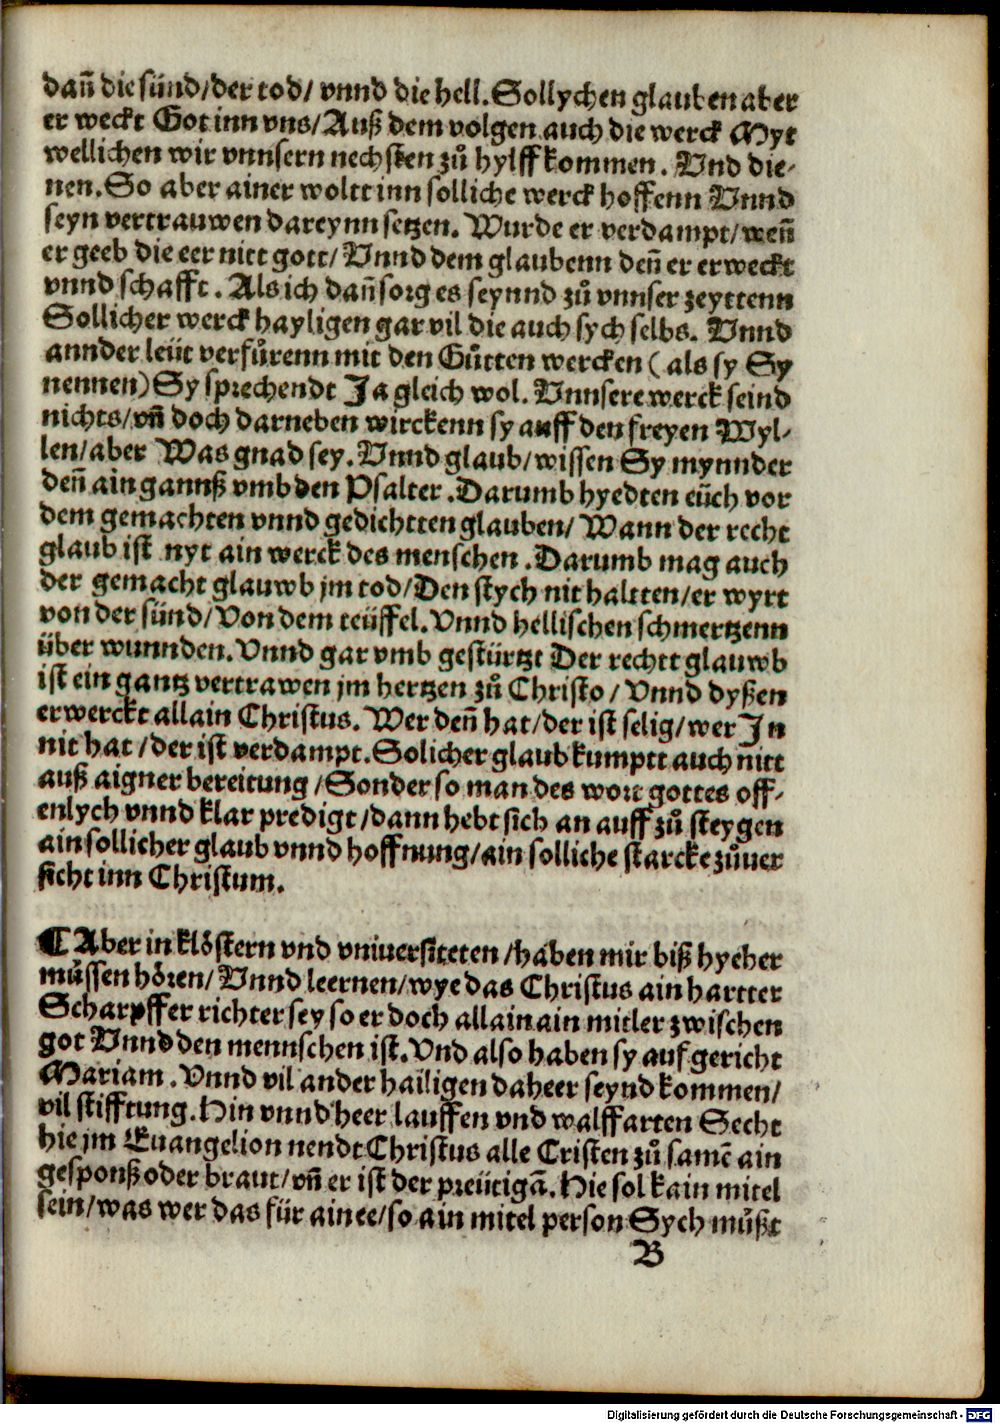 dañ die sünd/der tod/ vnnd die hell. Sollychen glauben aber
er weckt Got inn vns/Auß dem volgen auch die werck Myt
wellichen wir vnnsern nechsten zů hylff kommen. Vnd die-
nen. So aber ainer woltt inn solliche werck hoffenn Vnnd
seyn vertrauwen dareynn setzen. Wurde er verdampt/weñ
er geeb die eer nitt gott/ Vnnd dem glaubenn deñ er erweckt
vnnd schafft. Als ich dañ sorg es seynnd zů vnnser zeyttenn
Sollicher werck hayligen gar vil die auch sych selbs. Vnnd
annder leüt verfůrenn mit den Gůtten wercken (als sy Sy
nennen) Sy sprechendt Ja gleich wol. Vnnsere werck seind
nichts/vñ doch darneben wirckenn sy auff den freyen Wyl-
len/aber Was gnad sey. Vnnd glaub/wissen Sy mynnder
deñ ain gannß vmb den Psalter. Darumb hyedten eüch vor
dem gemachten vnnd gedichtten glauben/ Wann der recht
glaub ist nyt ain werck des menschen. Darumb mag auch
der gemacht glauwb jm tod/Den stych nit haltten/er wyrt
von der sünd/Von dem teüffel. Vnnd hellischen schmertzenn
über wunnden. Vnnd gar vmb gestürtzt Der rechtt glauwb
ist ein gantz vertrawen jm hertzen zů Christo/ Vnnd dyßen
erwerckt allain Christus. Wer deñ hat/der ist selig/wer Jn
nit hat/der ist verdampt. Solicher glaub kumptt auch nitt
auß aigner bereitung/Sonder so man des wort gottes off-
enlych vnnd klar predigt/dann hebt sich an auff zů steygen
ain sollicher glaub vnnd hoffnung/ain solliche starcke zůuer
sicht inn Christum.
¶ Aber in klőstern vnd vniuersiteten/haben mir biß hyeher
můssen hőren/ Vnnd leernen/wye das Christus ain hartter
Scharpffer richter sey so er doch allain ain mitler zwischen
got Vnnd den mennschen ist. Vnd also haben sy auf gericht
Mariam. Vnnd vil ander hailigen daheer seynd kommen/
vil stifftung. Hin vnnd heer lauffen vnd walffarten Secht
hie jm Euangelion nendt Christus alle Cristen zů samẽ ain
gesponß oder braut/vñ er ist der preütigã. Hie sol kain mitel
sein/was wer das für ain ee/so ain mitel person Sych můßt
B
Digitalisierung gefördert durch die Deutsche Forschungsgemeinschaft - DFG